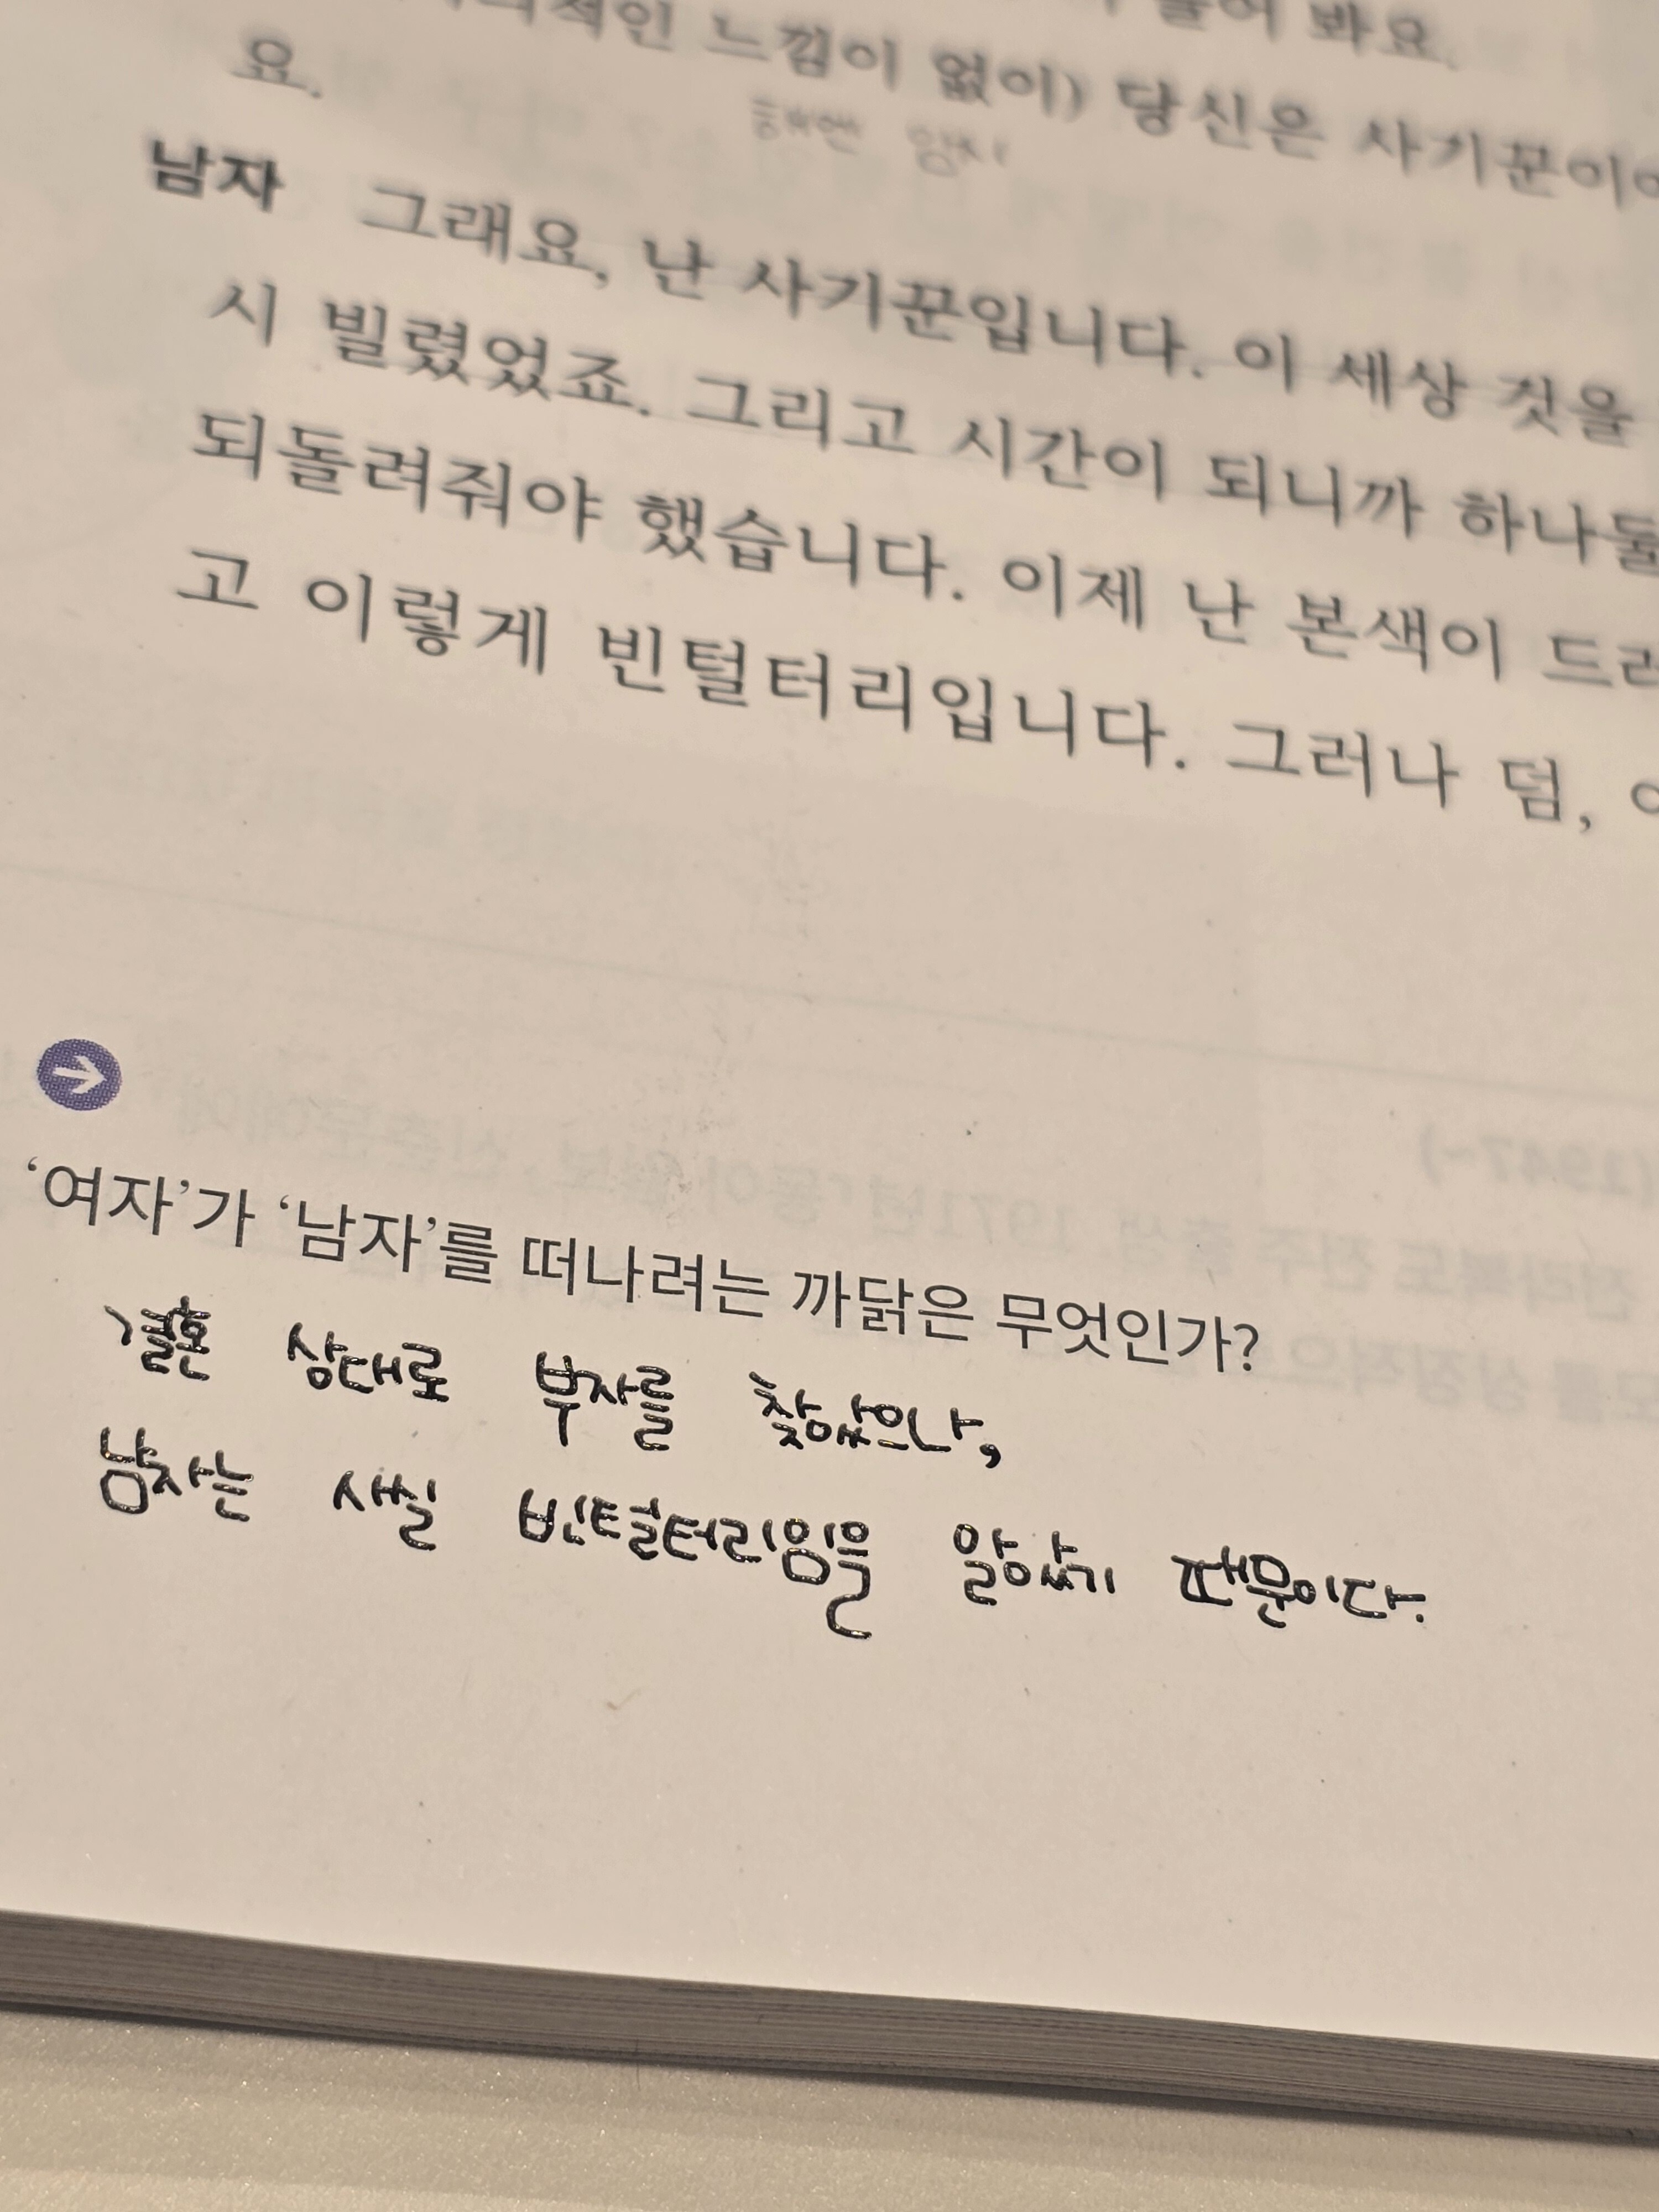 느낌이 없이) 당신은 사기꾼이
요.
남자 그래요, 난 사기꾼입니다. 이 세상 것을
시 빌렸었죠. 그리고 시간이 되니까 하나둘
되돌려줘야 했습니다. 이제 난 본색이 드러
고 이렇게 빈털터리입니다. 그러나 덤,
‘여자’가 ‘남자’를 떠나려는 까닭은 무엇인가?
결혼 상대로 부자를 찾았으나,
남자는 사실 빈털터리임을 알았기 때문이다.